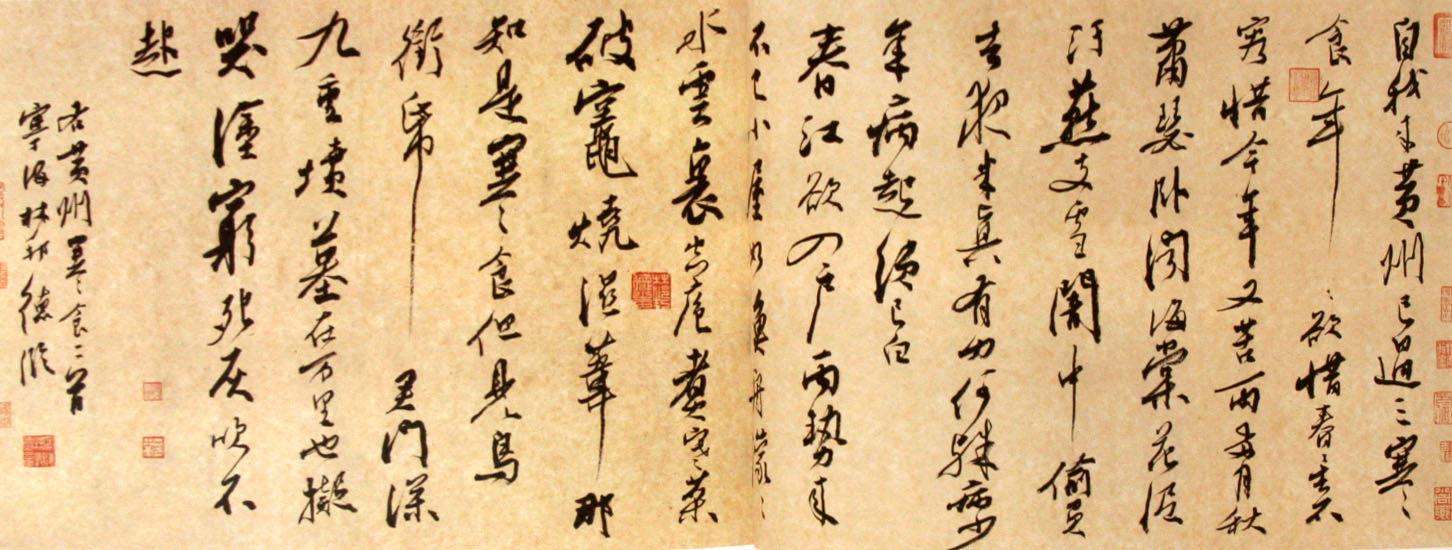 自我来黄州已過三寒
食年〻欲惜春〻去不
容惜今年又苦雨兩月秋
蕭瑟卧聞海棠花泥
汙燕支雪闇中偷負
去夜半真有力何殊病少
年病起須已白
春江欲入户雨勢来
不已小屋如漁舟濛〻
水雲裏空庖煮寒菜
破竈燒湿葦那
知是寒食但見烏
銜帋君門深
九重墳墓在万里也擬
哭塗窮死灰吹不
起
右黄州寒食二首
寧海林邦德临